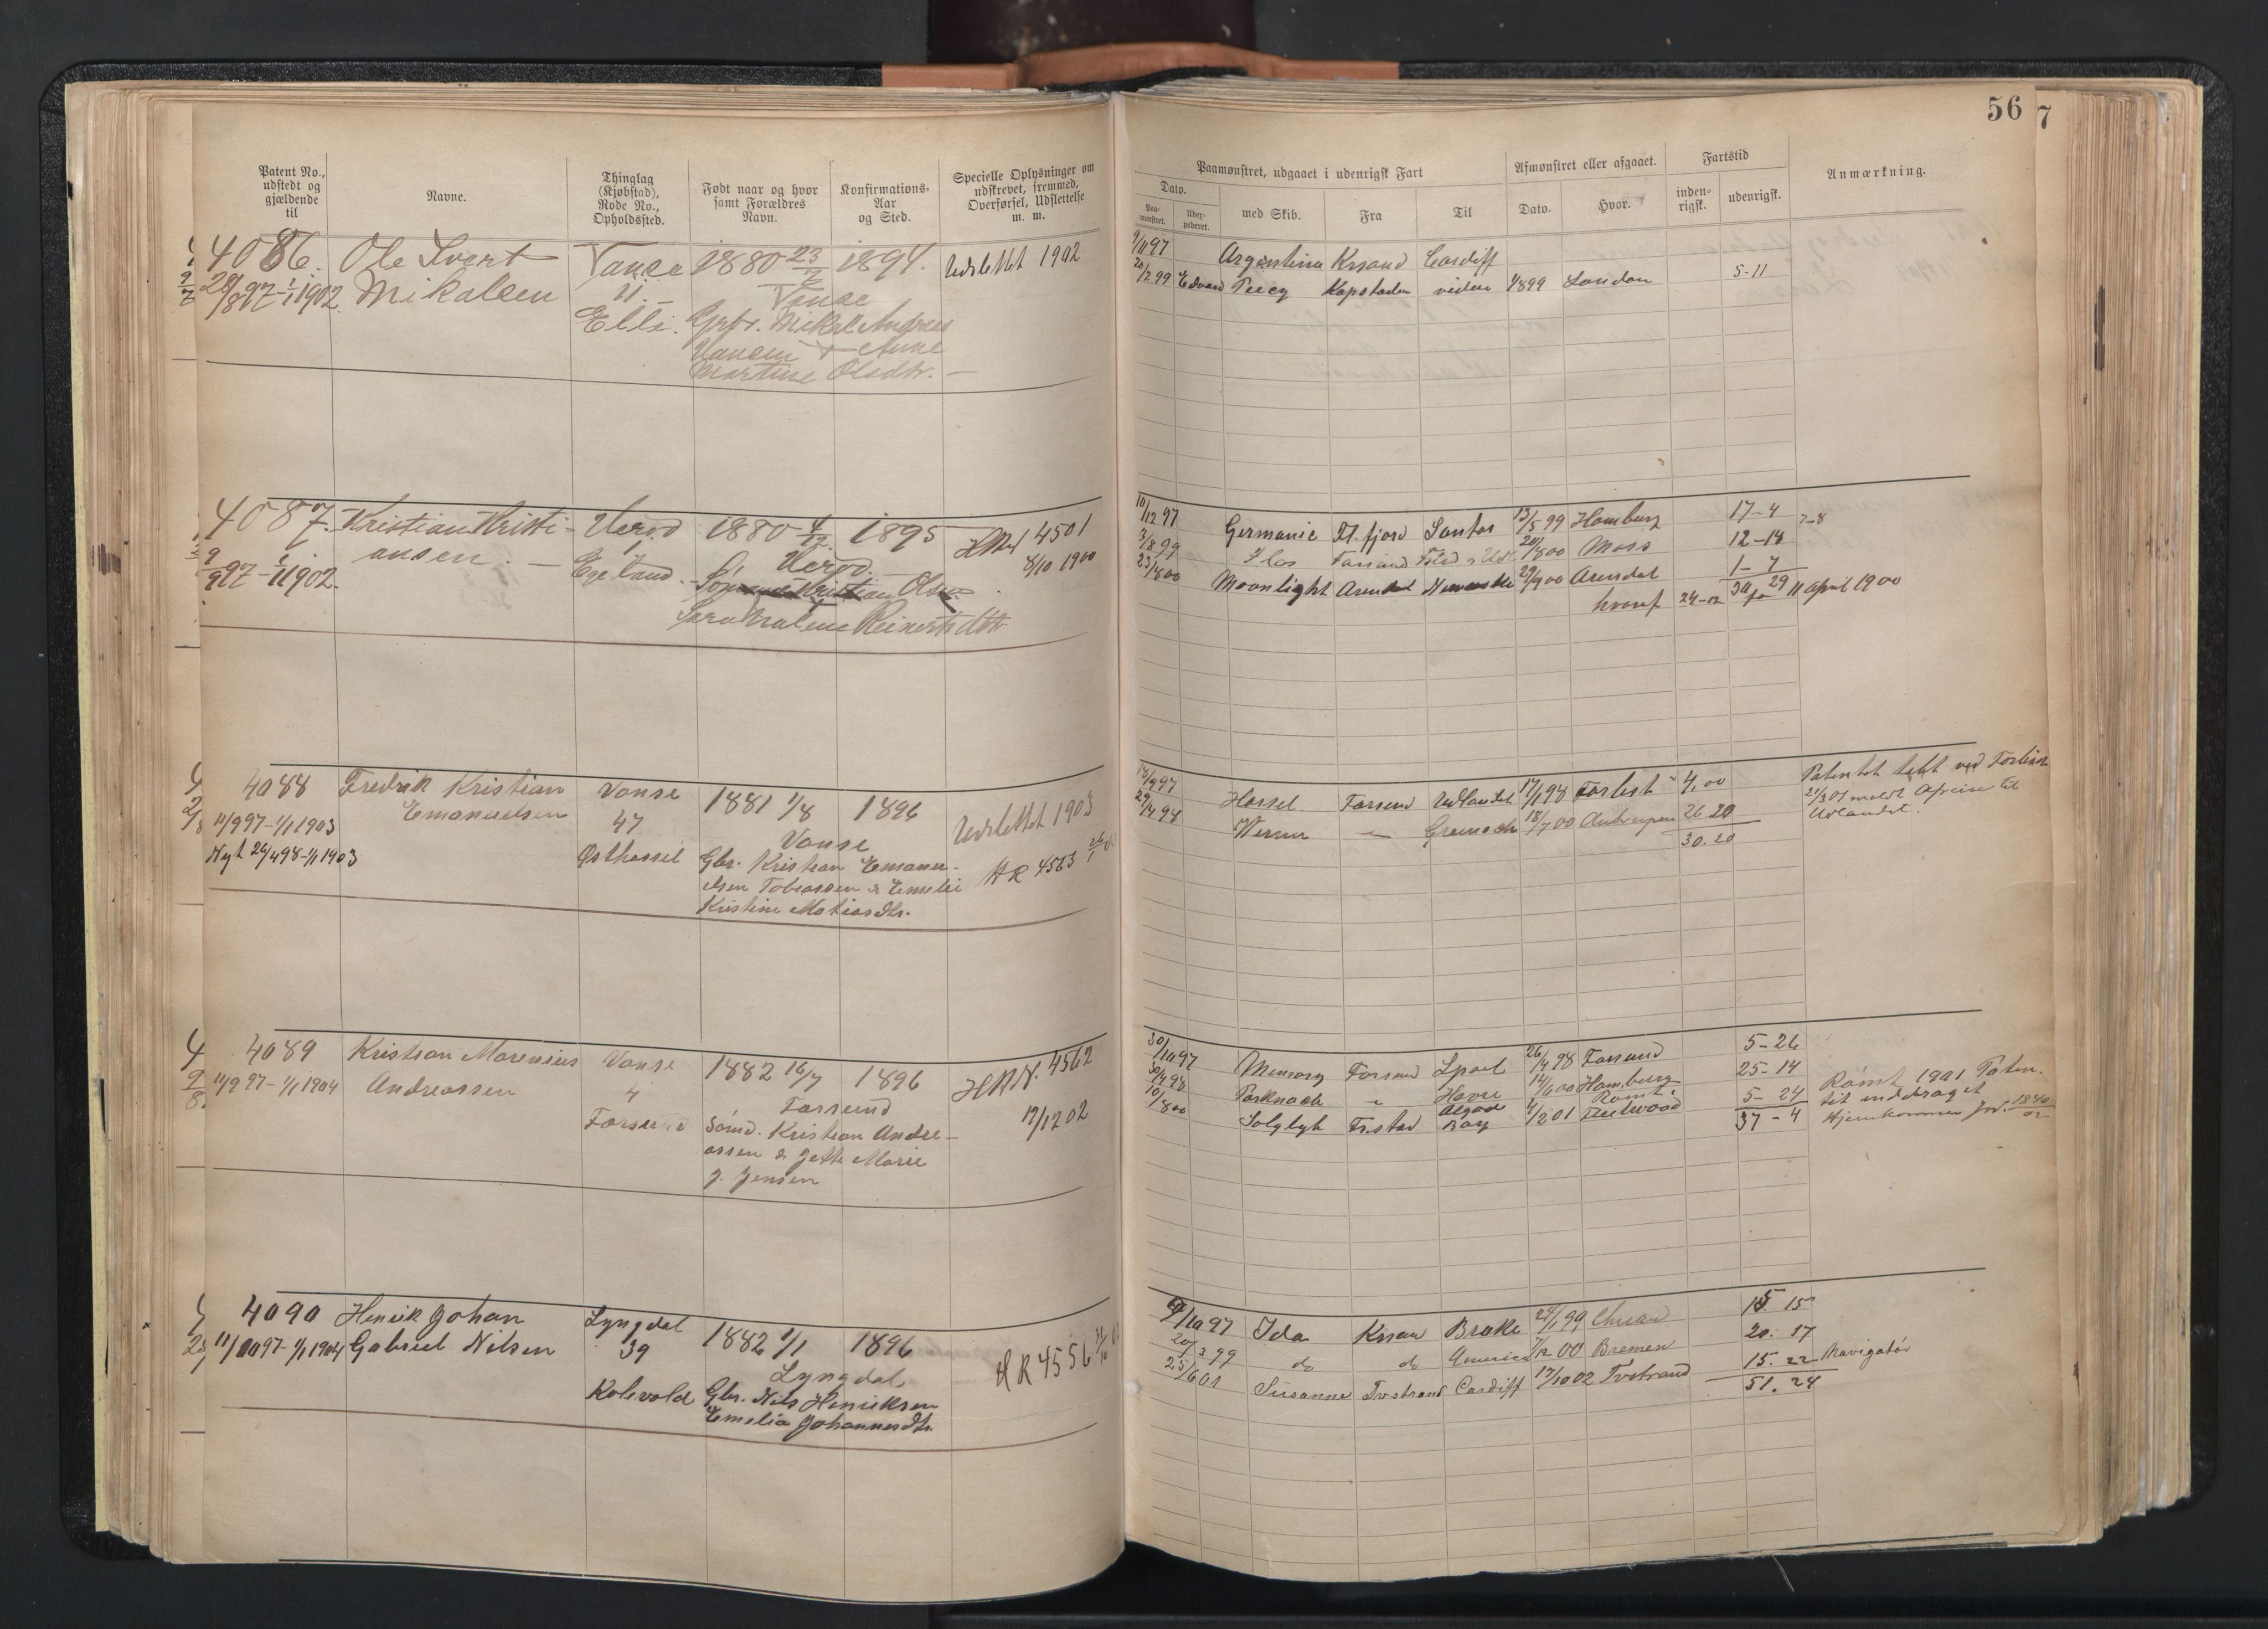 56
7
Patent No.,
udstedt og
gjældende
til
Navne.
Thinglag
(Kjøbstad),
Rode No.,
Opholdssted.
Født naar og hvor
samt Forældres
Navn.
Konfirmations-
Aar
og Sted.
Specielle Oplysninger om
udskrevet, fremmed,
Overførsel, Udslettelse
m. m.
Paamønstret, udgaaet i udenrigsk Fart
Dato.
Paa-
mønstret.
Uder-
pederet.
med Skib.
Fra
Til
Afmønstret eller afgaaet.
Dato.
Hvor.
Fartstid
inden-
rigsk.
udenrigsk.
Anmærkning.
4086.
Ole Svert
Mikalsen
Vanse
11.
1880 23/2
Vanse
Gbr. Mikal Andreas
Hansen & Anne
Martine Olsdtr.
1894.
Udslettet 1902
9/11 97 Argentina Krsand Cardiff
20/2 99 Edvard Percy Kapstaden viden London 5-11
4087. Kristian Kristi-
ansen.
9/9 97 - 1/1 1902.
Egeland.
1880 4/12
Kristian Olsen
Sara Malene Reinertsdtr
1895
4501
8/10 1900
10/12 97 Germanic Fl. fjord Santos 13/5 99 Hamburg 17-4
3/8 99 Farsund 20/1 800 Moss 12-18
23/1 800 Moonlight Arendal 29/9 00 Arendal 1-7
hvoraf 24-12
11 April 1900
4088
11/9 97 - 1/1 1903
Nyt 26/4 98 - 1/1 1903
Fredrik Kristian
Emanuelsen
Vanse
47
Østhassel
1881 1/8
Vanse
Gbr. Kristian Emanu-
elsen Tobiassen & Emelie
Kristine Matiasdtr.
1896
Udslettet 1903
HR 4563
18/9 97 Hassel Farsund Udlandet 17/1 98 Forlist 4,00
29/4 98 Werun Greenock 18/7 00 Antwerpen 26.20
30.20
Patentet tabt ved Forliset
21/3 01 meldt Afreise til
Udlandet.
4089
11/9 97 - 1/1 1904
Kristian Marenius
Andreassen
Vanse
4
Farsund
1882 16/7
Farsund
Sømd. Kristian Andre-
assen & Jette Marie
J. Jensen
1896
HR N. 4562
19/12 02
30/10 97 Memory Farsund Lpool 26/4 98 Farsund 5-26
30/4 98 Parknook Havre 14/6 00 Hamburg 25-14
10/8 00 Solglyt Fr.stad Algoa Bay 4/2 01 Rømt. Fleetwood 5-24
37-4
Rømt 1901 Paten-
tet inddraget
Hjemkommen Jnr. 1840/02
4090
11/10 97 - 1/1 1904
Henrik Johan
Gabriel Nilsen
Lyngdal
39
Kolevold
1882 1/1
Lyngdal
Gbr. Nils Henriksen
Emelia Johannesdtr.
1896
HR 4556
10 97 Ida Krsan Brake 24/1 99 Chrsan 15 15
20/3 99 do do America 7/12 00 Bremen 20. 17
25/6 01 Susanne Tvstrand Cardiff 17/10 02 Tvstrand 15. 22 Navigatør
51. 24